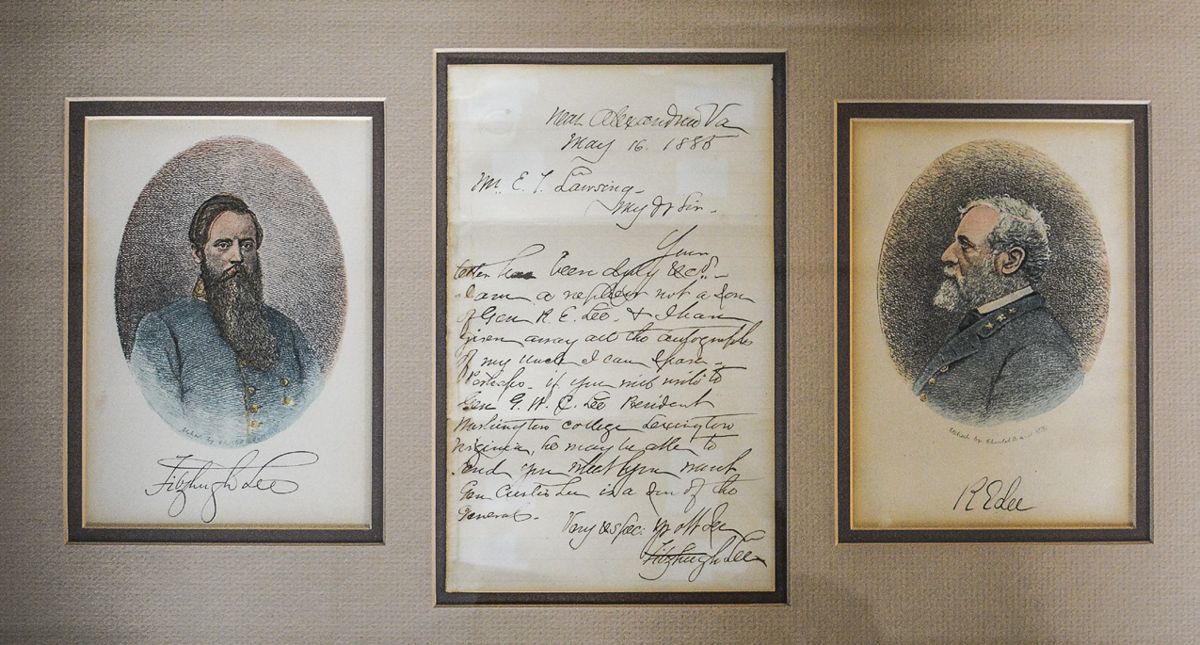 Near Alexandria Va
May 16. 1885
Mr. E. T. Lansing
My Dr Sir
Your
letter has been duly recd.
I am a nephew not a Son
of Gen R. E. Lee. & I have
given away all the autographs
of my Uncle I can spare
Perhaps if you will write to
Gen G. W. C. Lee President
Washington College Lexington
Virginia, he may be able to
send you what you want
Gen Custis Lee is a son of the
General.
Very respec. yr obt Ser
Fitzhugh Lee
Etched by
Fitzhugh Lee
Etched by
R E Lee